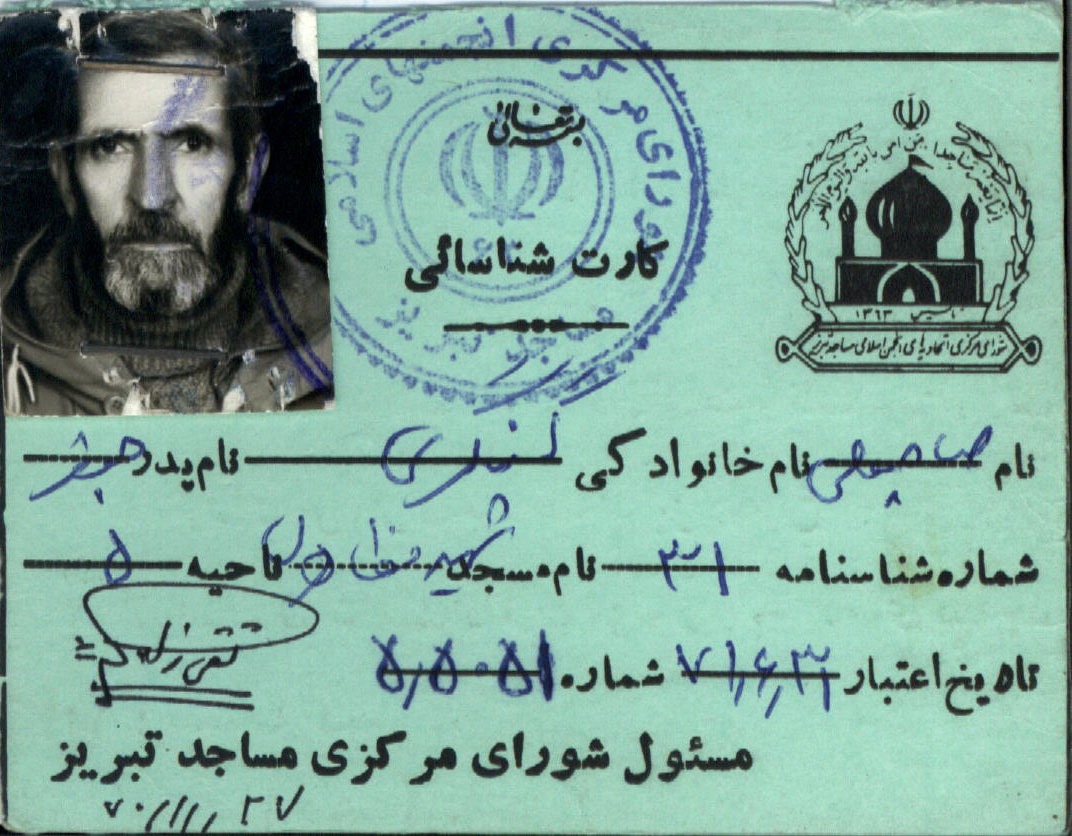 شورای مرکزی انجمنهای اسلامی
مساجد تبریز
بسمه تعالی
کارت شناسائی
تاسیس ۱۳۶۳
شورای مرکزی اتحادیه های انجمن اسلامی مساجد تبریز
نام نام خانوادگی نام پدر جعفر
شماره شناسنامه ۳۱ نام مسجد شهید ناحیه ۵
تاریخ اعتبار ۷۱/۶/۳۱ شماره
مسئول شورای مرکزی مساجد تبریز
۷۰/۱۱/۲۷